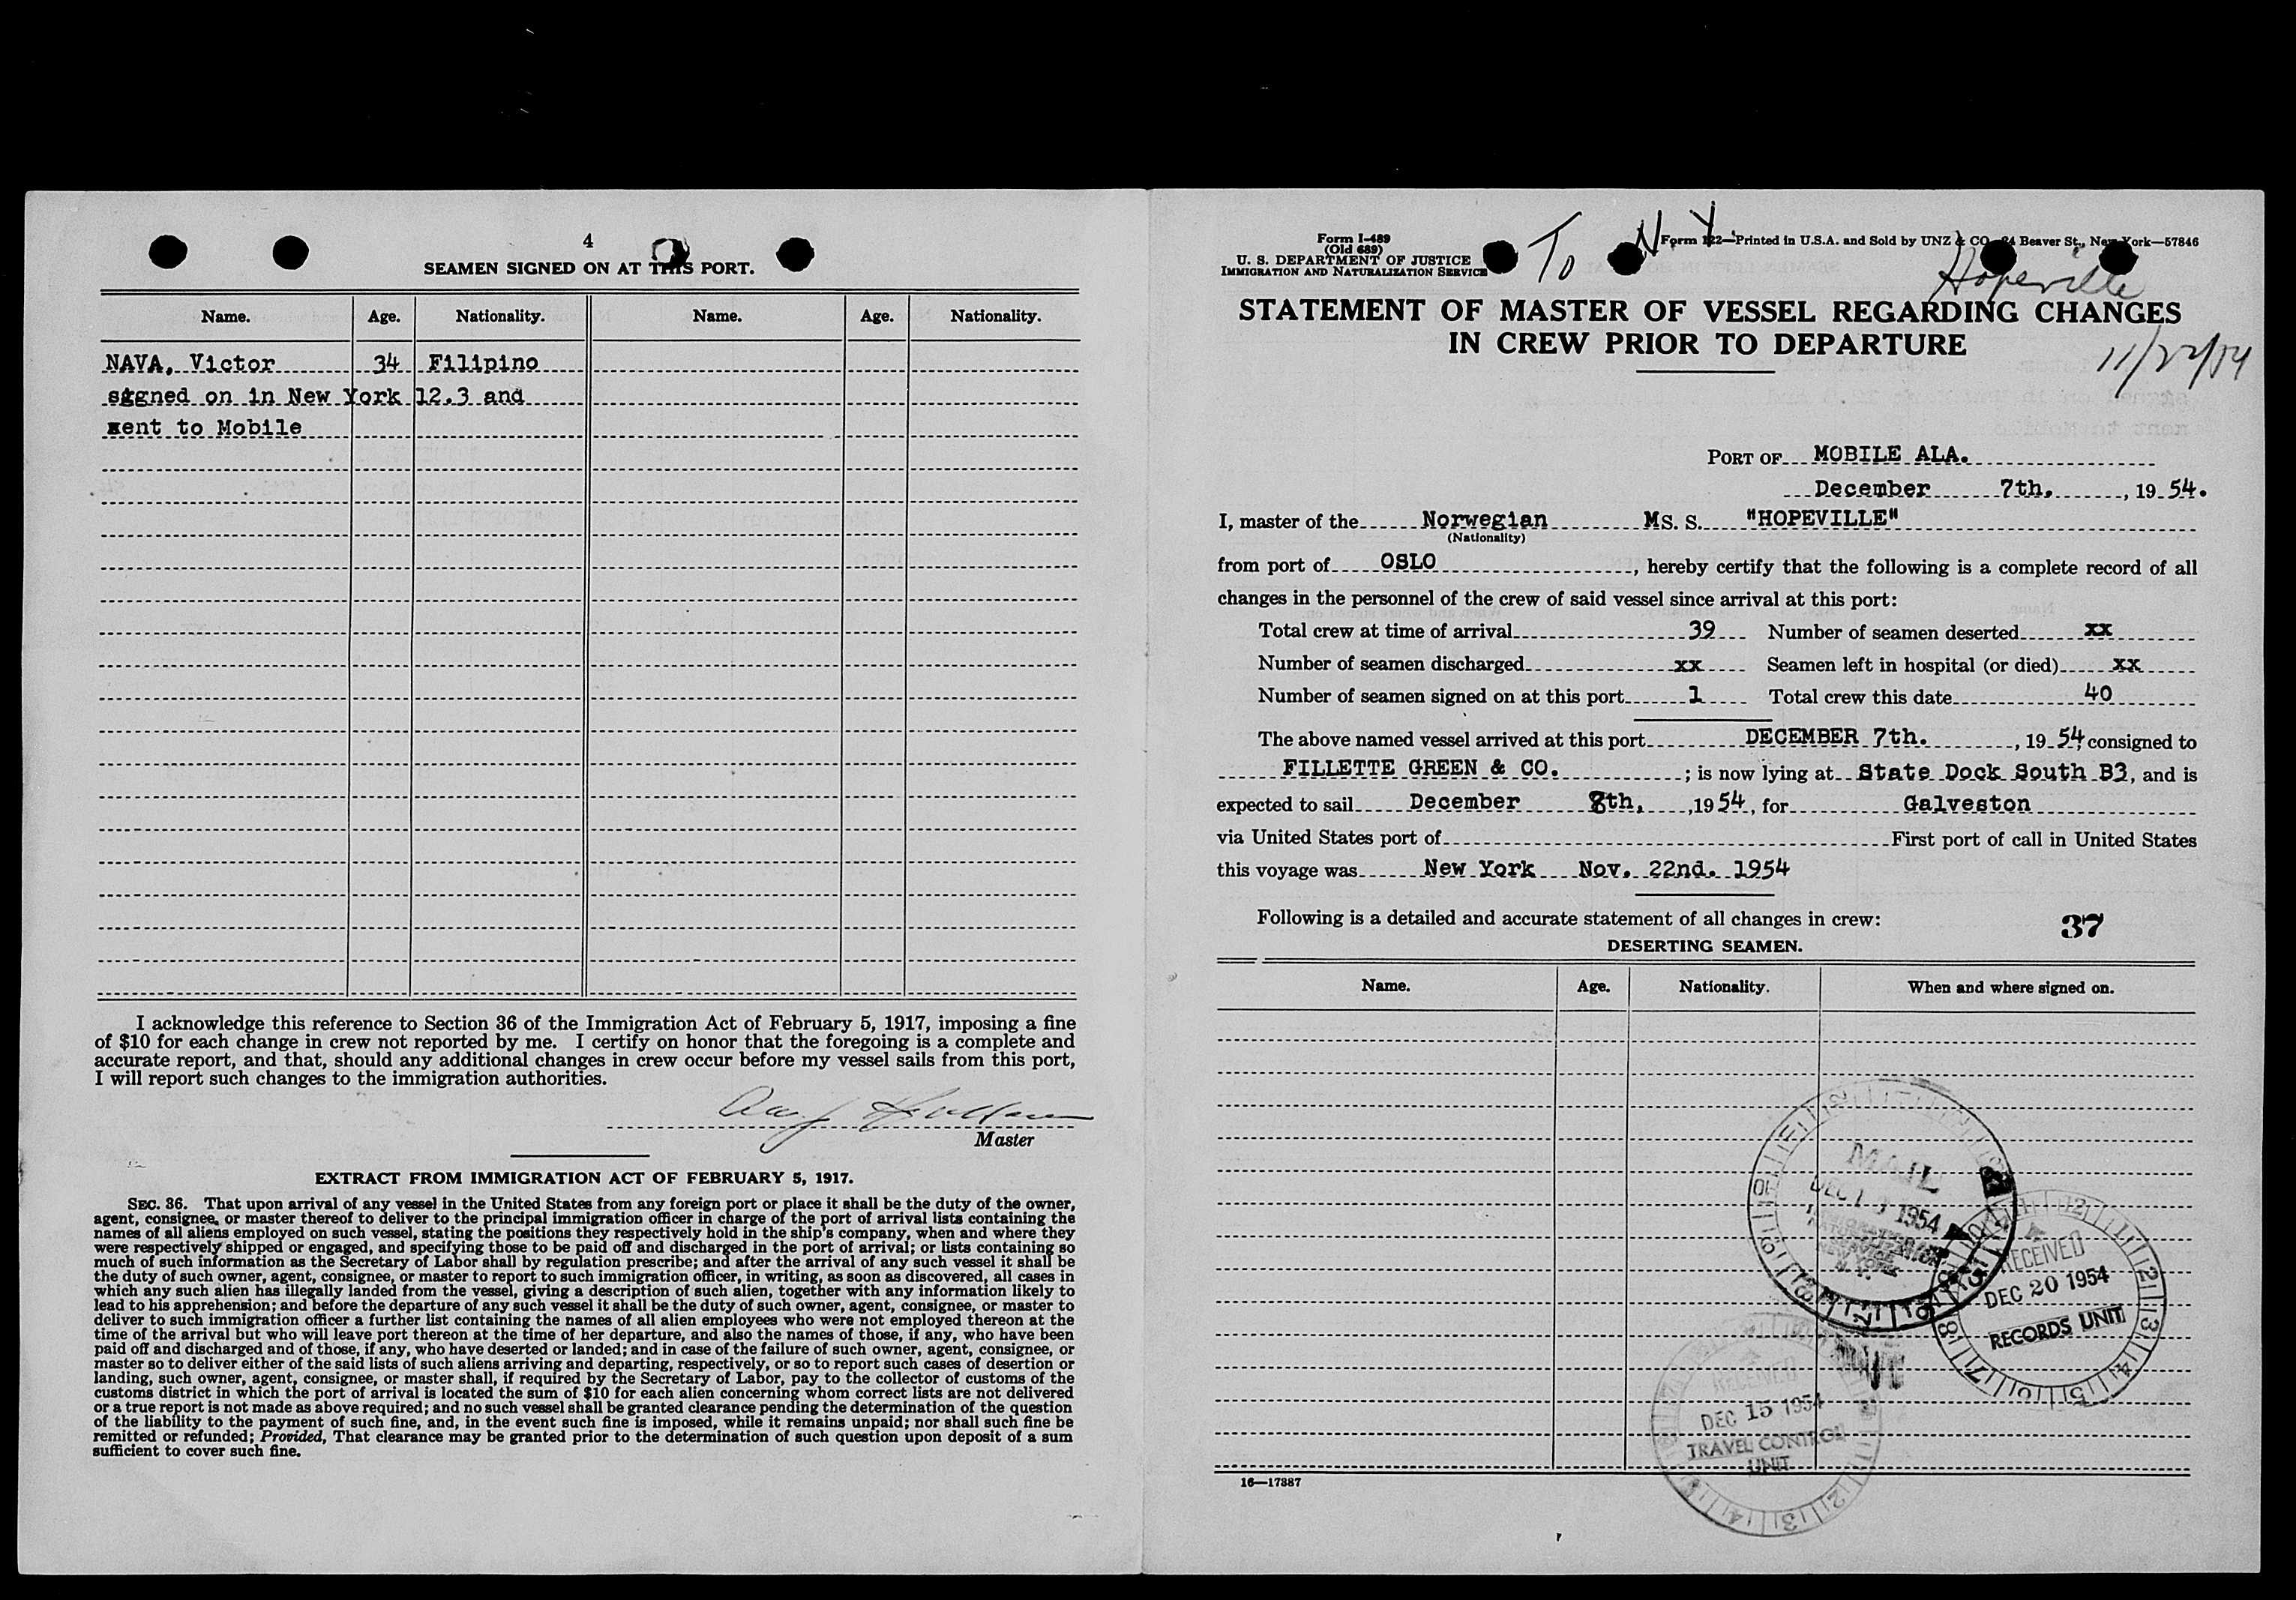 4
SEAMEN SIGNED ON AT THIS PORT.
Name. Age. Nationality. Name. Age. Nationality.
NAVA, Victor 34 Filipino
signed on in New York 12.3 and
sent to Mobile
I acknowledge this reference to Section 36 of the Immigration Act of February 5, 1917, imposing a fine
of $10 for each change in crew not reported by me. I certify on honor that the foregoing is a complete and
accurate report, and that, should any additional changes in crew occur before my vessel sails from this port,
I will report such changes to the immigration authorities.
Master
EXTRACT FROM IMMIGRATION ACT OF FEBRUARY 5, 1917.
SEC. 36. That upon arrival of any vessel in the United States from any foreign port or place it shall be the duty of the owner,
agent, consignee, or master thereof to deliver to the principal immigration officer in charge of the port of arrival lists containing the
names of all aliens employed on such vessel, stating the positions they respectively hold in the ship's company, when and where they
were respectively shipped or engaged, and specifying those to be paid off and discharged in the port of arrival; or lists containing so
much of such information as the Secretary of Labor shall by regulation prescribe; and after the arrival of any such vessel it shall be
the duty of such owner, agent, consignee, or master to report to such immigration officer, in writing, as soon as discovered, all cases in
which any such alien has illegally landed from the vessel, giving a description of such alien, together with any information likely to
lead to his apprehension; and before the departure of any such vessel it shall be the duty of such owner, agent, consignee, or master to
deliver to such immigration officer a further list containing the names of all alien employees who were not employed thereon at the
time of the arrival but who will leave port thereon at the time of her departure, and also the names of those, if any, who have been
paid off and discharged and of those, if any, who have deserted or landed; and in case of the failure of such owner, agent, consignee, or
master so to deliver either of the said lists of such aliens arriving and departing, respectively, or so to report such cases of desertion or
landing, such owner, agent, consignee, or master shall, if required by the Secretary of Labor, pay to the collector of customs of the
customs district in which the port of arrival is located the sum of $10 for each alien concerning whom correct lists are not delivered
or a true report is not made as above required; and no such vessel shall be granted clearance pending the determination of the question
of the liability to the payment of such fine, and, in the event such fine is imposed, while it remains unpaid; nor shall such fine be
remitted or refunded; Provided, That clearance may be granted prior to the determination of such question upon deposit of a sum
sufficient to cover such fine.
Form I-489
(Old 689)
U. S. DEPARTMENT OF JUSTICE
IMMIGRATION AND NATURALIZATION SERVICE
To N Y
Form 122—Printed in U.S.A. and Sold by UNZ & CO., 24 Beaver St., New York—57846
Hopeville
STATEMENT OF MASTER OF VESSEL REGARDING CHANGES
IN CREW PRIOR TO DEPARTURE
11/22/54
PORT OF MOBILE ALA.
December 7th, , 19 54.
I, master of the Norwegian MS. S. "HOPEVILLE"
(Nationality)
from port of OSLO , hereby certify that the following is a complete record of all
changes in the personnel of the crew of said vessel since arrival at this port:
Total crew at time of arrival 39 Number of seamen deserted xx
Number of seamen discharged xx Seamen left in hospital (or died) xx
Number of seamen signed on at this port 1 Total crew this date 40
The above named vessel arrived at this port DECEMBER 7th. , 19 54, consigned to
FILLETTE GREEN & CO. ; is now lying at State Dock South B3, and is
expected to sail December 8th, ,19 54, for Galveston
via United States port of First port of call in United States
this voyage was New York Nov. 22nd. 1954
Following is a detailed and accurate statement of all changes in crew:
37
DESERTING SEAMEN.
Name. Age. Nationality. When and where signed on.
MAIL
1954
NEW YORK
N. Y.
RECEIVED
DEC 20 1954
RECORDS UNIT
RECEIVED
DEC 15 1954
TRAVEL CONTROL
UNIT
16—17387